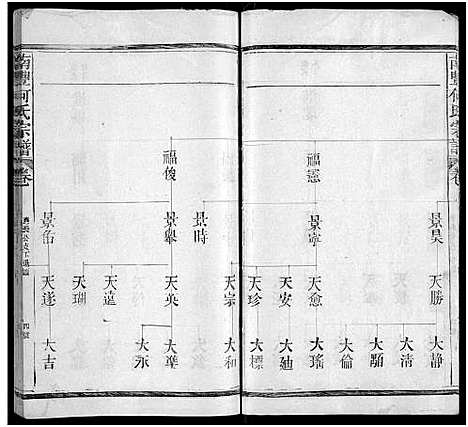 南豐何氏宗譜 卷
福憲
福俊
景昊
景寧
景時
景舉
天勝
天愈
天安
天珍
天宗
天英
天遠
天瑚
天遂
大靜
大清
大顒
大倫
大瑤
大廸
大標
大和
大準
大永
大吉
南豐何氏宗譜 卷
四